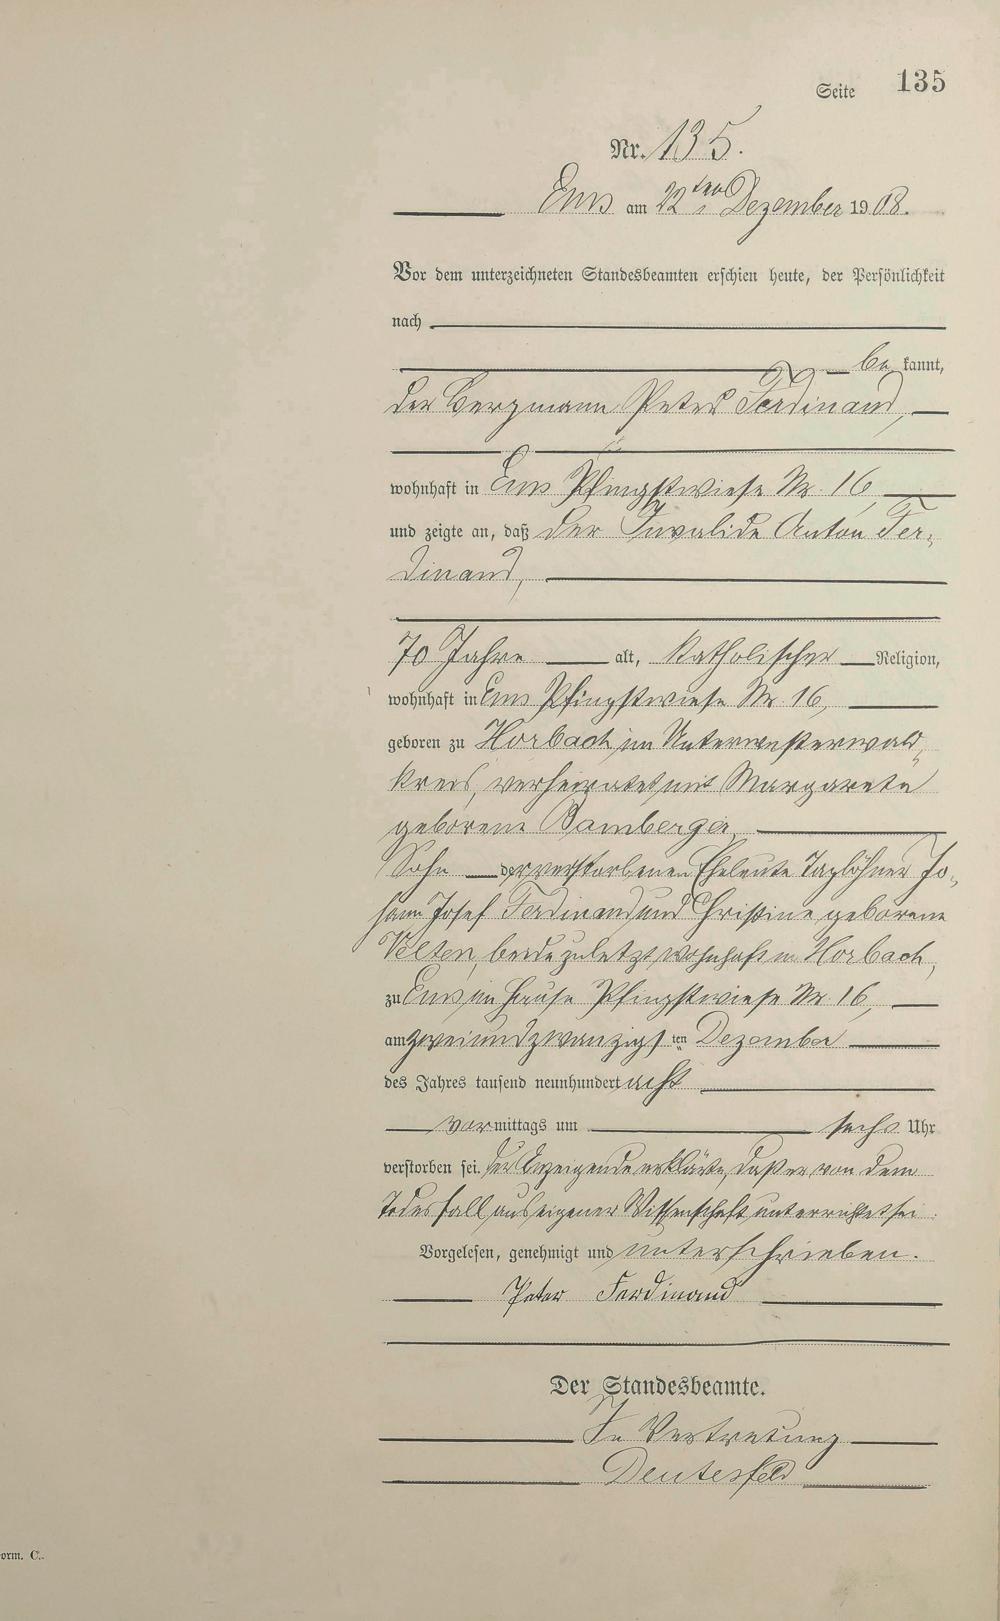 Seite 135
Nr. 135.
Ems am 22ten Dezember 1908.
Vor dem unterzeichneten Standesbeamten erschien heute, der Persönlichkeit
nach
bekannt,
der Bergmann Peter Ferdinand,
wohnhaft in Ems Pfingstwiese Nr. 16,
und zeigte an, daß der Invalide Anton Fer-
dinand,
70 Jahre alt, katholischer Religion,
wohnhaft in Ems Pfingstwiese Nr. 16,
geboren zu Horbach im Unterwesterwald-
kreis, verheiratet mit Margareta
geborene Bamberger,
Sohn der verstorbenen Eheleute Taglöhner Jo-
hann Josef Ferdinand und Christine geborene
Velten, beide zuletzt wohnhaft in Horbach,
zu Ems im Hause Pfingstwiese Nr. 16,
am zweiundzwanzigsten Dezember
des Jahres tausend neunhundert acht
vormittags um sechs Uhr
verstorben sei. Der Anzeigende erklärte, daß er von dem
Todesfall aus eigener Wissenschaft unterrichtet sei.
Vorgelesen, genehmigt und unterschrieben.
Peter Ferdinand
Der Standesbeamte.
In Vertretung
Deutesfeld
orm. C.